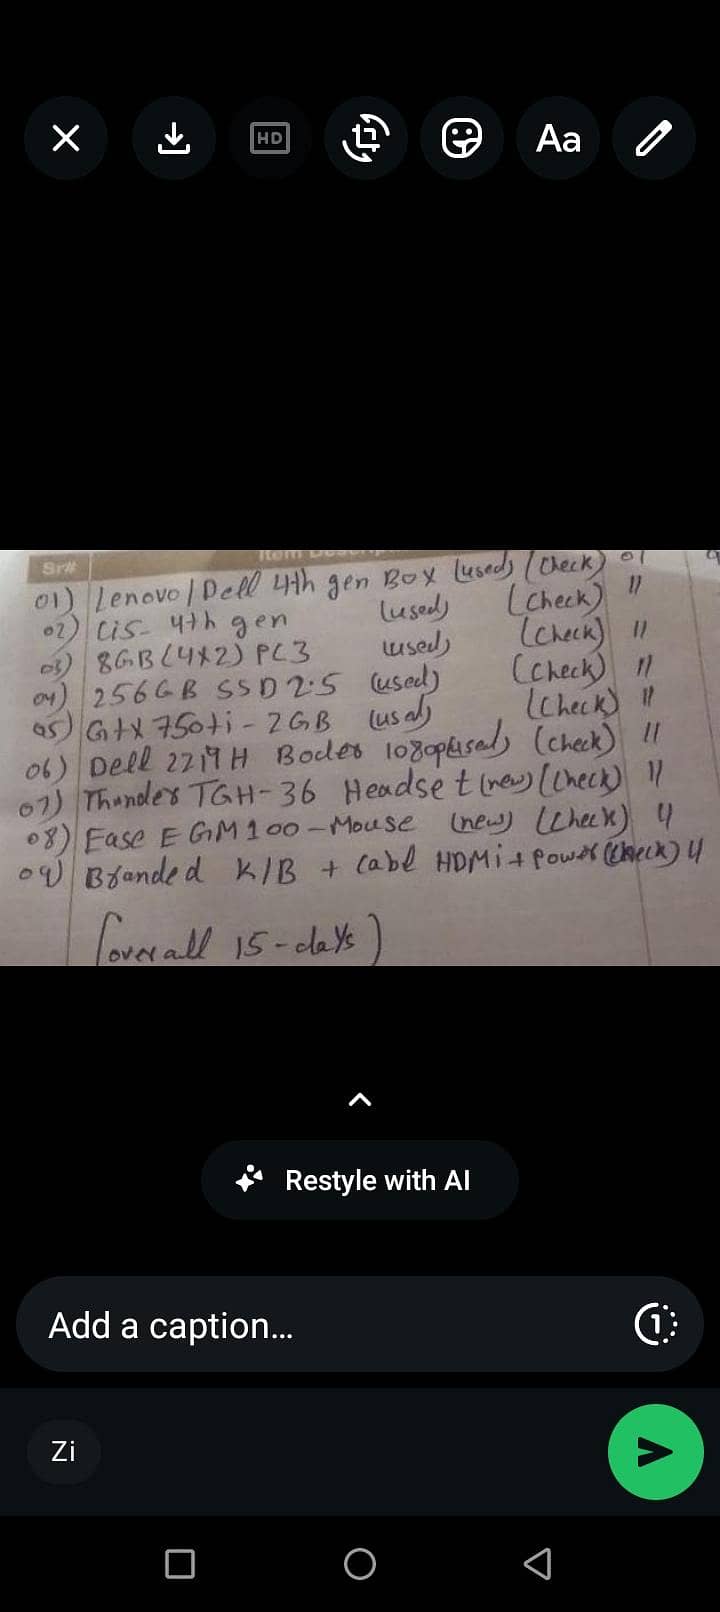 HD
Aa
Sr#
Item Descrip
01) Lenovo/Dell 4th gen Box (used) (Check) 01
02) Ci5- 4th gen (used) (Check) "
03) 8GB(4x2) PC3 (used) (Check) "
04) 256GB SSD 2.5 (used) (Check) "
05) Gtx 750ti - 2GB (used) (Check) "
06) Dell 2219H Boder 1080p(used) (check) "
07) Thunder TGH-36 Headset (new) (Check) "
08) Ease EGM100 - Mouse (new) (Check) "
09) Branded K/B + Cabl HDMi + Power (Check) "
(overall 15-days)
Restyle with AI
Add a caption...
1
Zi